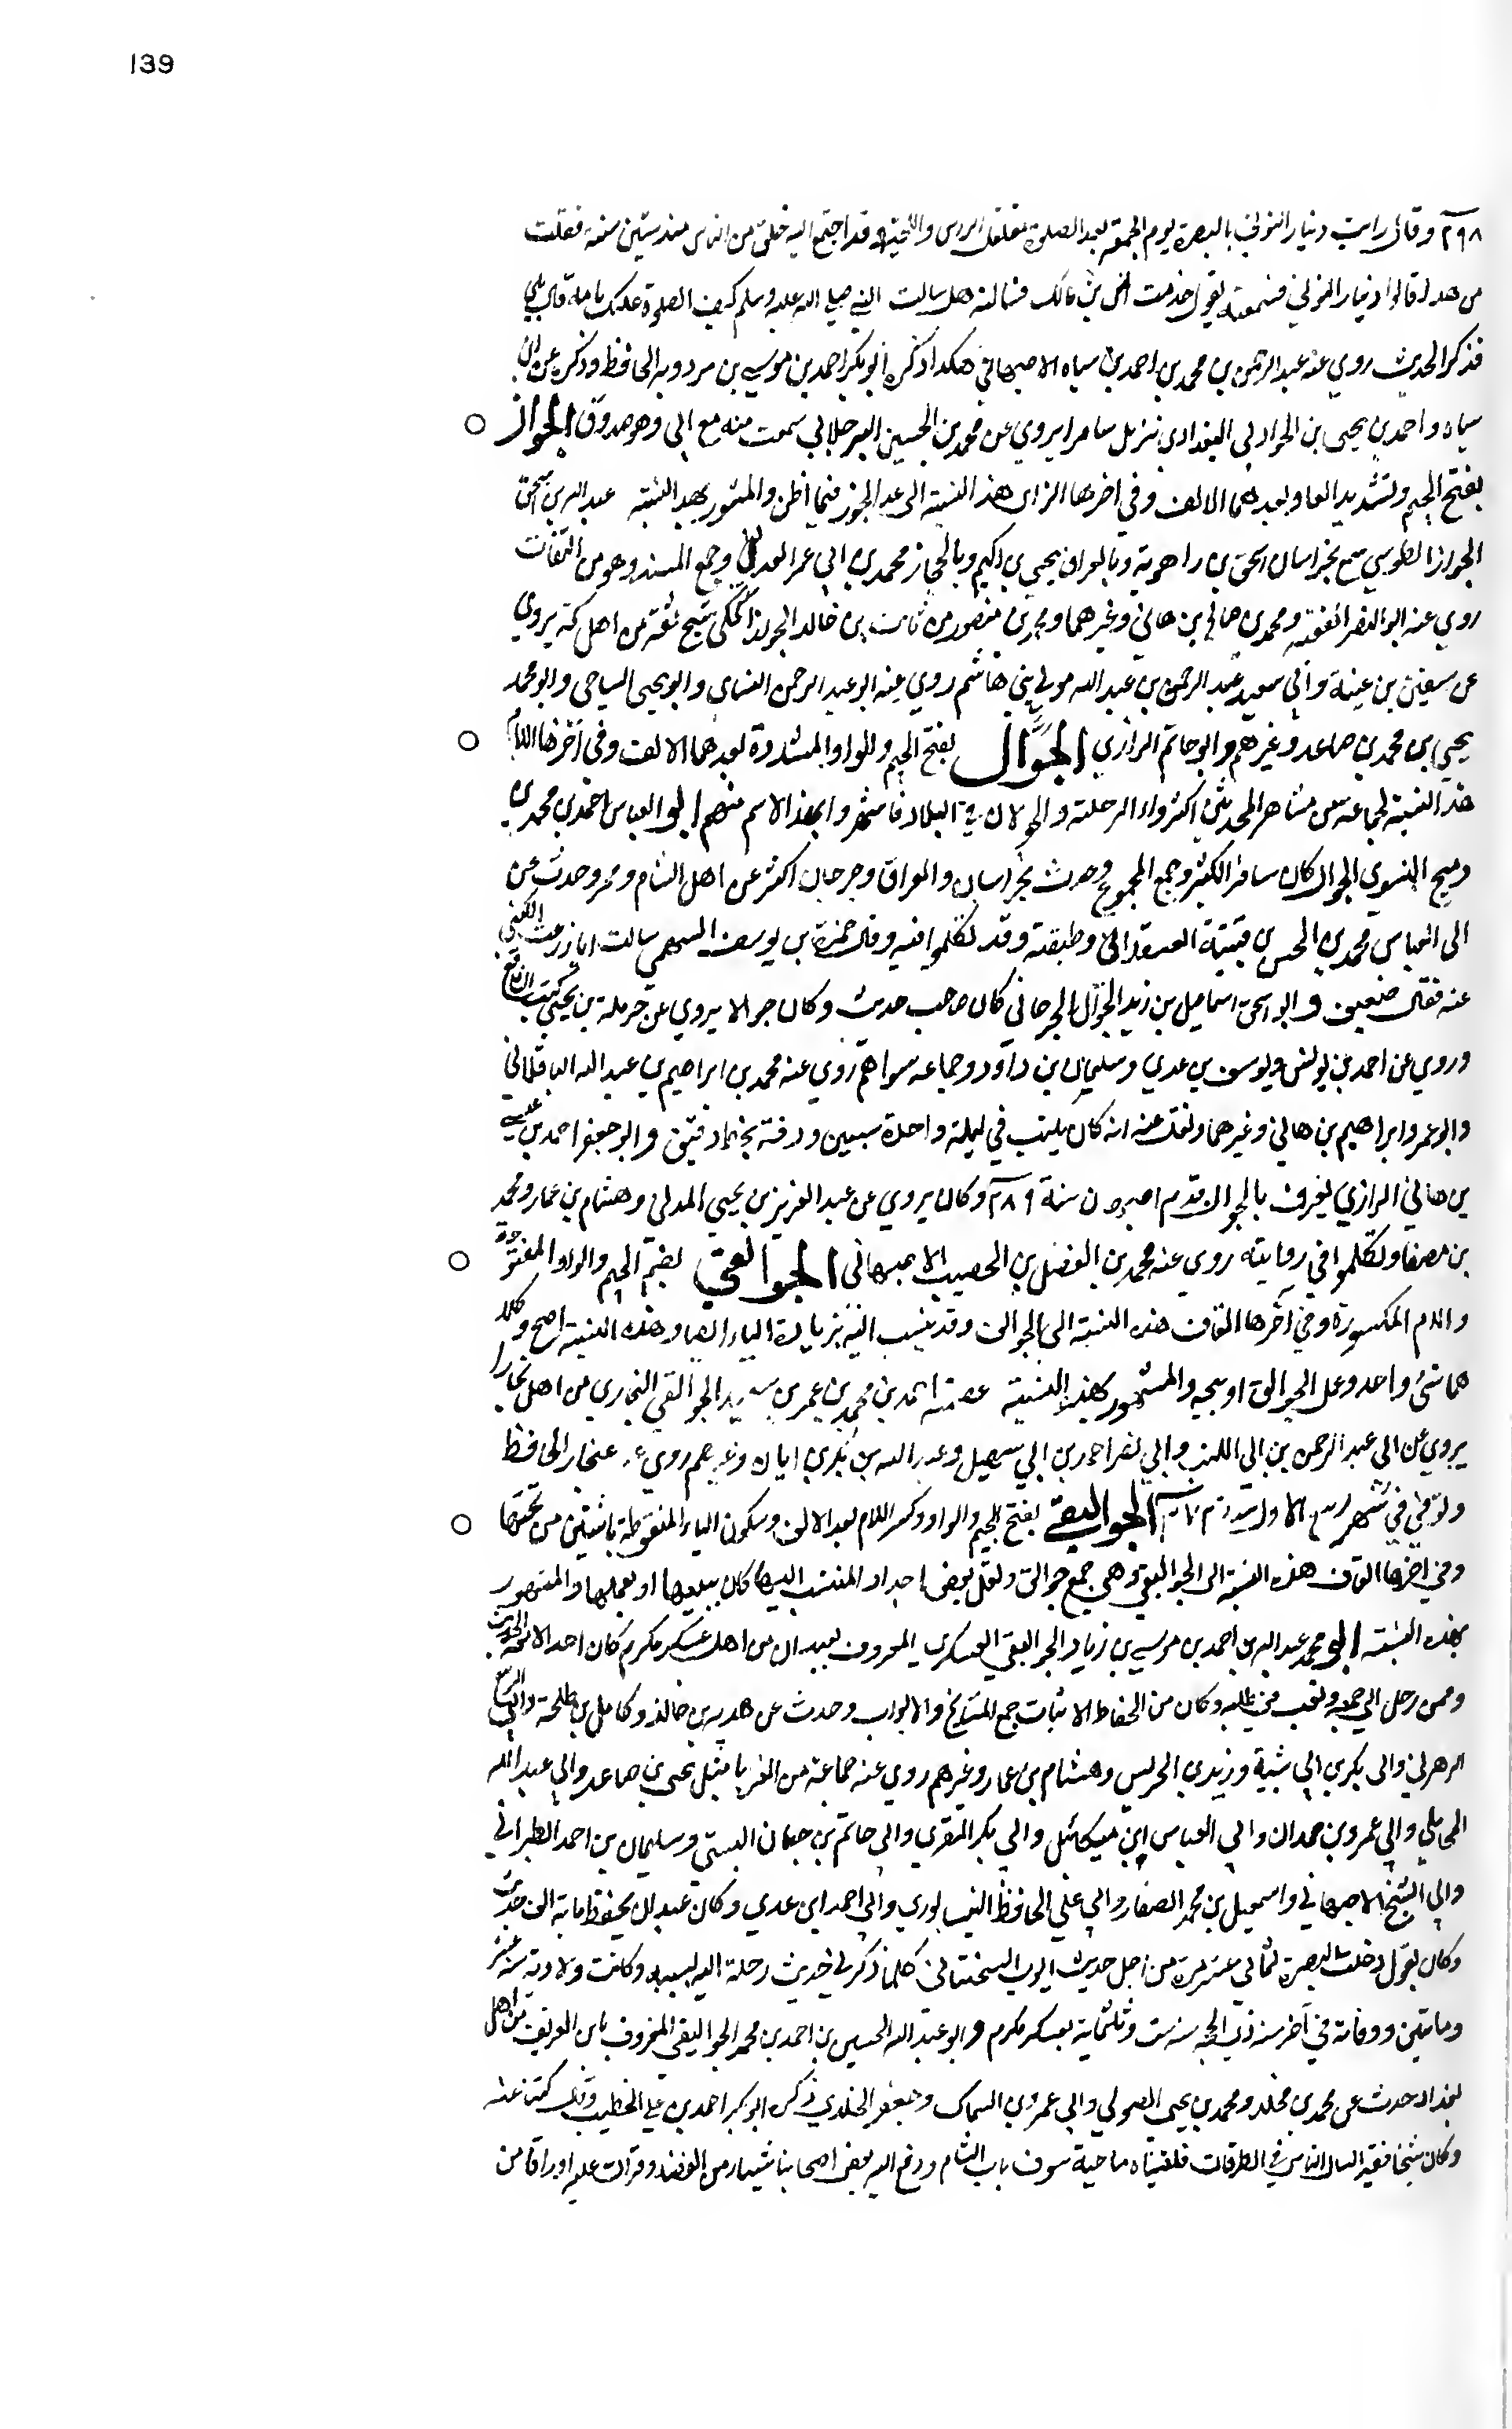 139
٢٩٨ وقال رايت دينار النوني بالبصرة يوم الجمعة بعد الصلوة الراس واللحية قد اجتمع اليه خلق من الناس منذ ستين سنة فقلت
من هذا قالوا دينار النوني فسمعته يقول خدمت انس بن مالك فسالته هل سالت النبي صلي الله عليه وسلم كيف الصلوة عليك يا مه قال بلي
فذكر الحديث روي عنه عبد الرحمن بن محمد بن احمد بن سياه الاصبهاني هكذا ذكره ابو بكر احمد بن موسي بن مردويه الحافظ وذكره عن ابن
سياه واحمد بن يحيى بن الجوازبي البغدادي نزيل سامرا يروي عن محمد بن الحسين البرجلاني سمعت منه مع ابي وهو صدوق الجواز
بفتح الجيم وتشديد الواو بعدهما الالف وفي اخرها الزاي هذه النسبة الى عد الجوز فيما اظن والمشهور بهذه النسبة عبد الله بن اسحق
الجواز الطوسي سمع بخراسان اسحق بن راهوية وبالعراق يحيى بن اكثم وبالحجاز محمد بن ابي عمر العدني وجمع المسند وهو من الثقات
روي عنه ابو النضر الفقيه ومحمد بن صالح بن هاني وغيرهما ومحمد بن منصور بن ثابت بن خالد الجواز المكي شيخ ثقة من اهل مكة يروي
عن سفين بن عينة وابي سعيد عبد الرحمن بن عبد الله مولي بني هاشم روي عنه ابو عبد الرحمن النساي وابو يحيى الساجي وابو محمد
يحيى بن محمد بن صاعد وغيرهم وابو حاتم الرازي الجوال بفتح الجيم والواو المشددة بعدهما الالف وفي اخرها اللام
هذه النسبة لجماعة من مشاهير المحدثين اكثروا الرحلة والجولان في البلاد فاشتهروا بهذا الاسم منهم ابو العباس احمد بن محمد بن
رميح النسوي الجوال كان سافر الكثير وجمع الجموع وحدث بخراسان والعراق وجرجان اكثر عن اهل الشام ومصر وحدث عن
ابي العباس محمد بن الحسن بن قتيبة العسقلاني وطبقته وقد تكلموا فيه وقال حمزة بن يوسف السهمي سالت ابا زرعة الكشي
عنه فقال ضعيف وابو اسحق اسماعيل بن زيد الجوال الجرجاني كان صاحب حديث وكان جوالا يروي عن حرملة بن يحيى كتب الشافعي
وروي عن احمد بن يونس ويوسف بن عدي وسليمان بن داود وجماعه سواهم روي عنه محمد بن ابراهيم بن عبد الله الباقلاني
وابو عمرو ابراهيم بن هاني وغيرهما ونقل عنه انه كان يكتب في ليلة واحدة سبعين ورقة بخط دقيق وابو جعفر احمد بن عيسي
بن هاني الرازي يعرف بالجوال قدم اصبهان سنة ٢٨٩ وكان يروي عن عبد العزيز بن يحيى المدني وهشام بن عمار ومحمد
بن مصفا وتكلموا في روايته روي عنه محمد بن الفضل بن الخصيب الاصبهاني الجوالقي بضم الجيم والواو المفتوحة
واللام المكسورة وفي آخرها القاف هذه النسبة الى الجوالق وقد ينسب اليه بزيادة الياء ايضا وهذه النسبة اصح وكلا
هما شئ واحد وعمل الجوالق او بيعه والمشهور بهذه النسبة عصمة احمد بن محمد بن عمر بن سعيد الجوالقي البخاري من اهل بخارا
يروي عن ابي عبد الرحمن بن ابي الليث وابي نصر احمد بن ابي سهيل وعبد الله بن بكر بن ابان وغيرهم روي عنه غنجار الحافظ
وتوفي في شهر ربيع الاول سنة الجواليقي بفتح الجيم والواو وكسر اللام بعد الالف وسكون الياء المنقوطة باثنتين من تحتها
وفي اخرها القاف هذه النسبة الى الجواليق وهي جمع جوالق ولعل بعض اجداد المنتسب اليها كان يبيعها او يعملها والمشهور
بهذه النسبة ابو محمد عبد الله بن احمد بن موسي بن زياد الجواليقي العسكري المعروف بعبدان من اهل عسكر مكرم كان احد الائمة الحديث
وممن رحل الى جمعه وتعب في طلبه وكان من الحفاظ الاثبات جمع المشايخ والابواب وحدث عن هدبه بن خالد وكامل بن طلحة وابي الربيع
الزهراني وابي بكر بن ابي شيبة وزيد بن الحريش وهشام بن عمار وغيرهم روي عنه جماعة من الغربا مثل يحيى بن صاعد وابي عبد الله
المحاملي وابي عمرو بن حمدان وابي العباس ابن ميكائيل وابي بكر المقري وابي حاتم بن حبان البستي وسليمان بن احمد الطبراني
وابي الشيخ الاصبهاني واسمعيل بن محمد الصفار وابي علي الحافظ النيسابوري وابي احمد ابن عدي وكان عبدان يحفظ ماية الف حديث
وكان يقول دخلت البصرة ثماني عشر مرة من اجل حديث ايوب السختياني كلما ذكر لي حديث رحلت اليه بسببه وكانت ولادته سنة عشر
وماتين ووفاته في آخر سنه ذي الحجه سنه ست وثلثماية بعسكر مكرم وابو عبد الله الحسين بن احمد بن محمد الجواليقي المعروف بابن العريف من اهل
بغداد حدث عن محمد بن مخلد ومحمد بن يحيى الصولي وابي عمرو بن السماك وجعفر الخلدي ذكره ابو بكر احمد بن علي الخطيب وقال كتبنا عنه
وكان شيخا فقيرا يسال الناس في الطرقات فلقيناه ناحية سوق باب الشام ودفع اليه بعض اصحابنا شيا من الفضه وقرات عليه اوراقا من